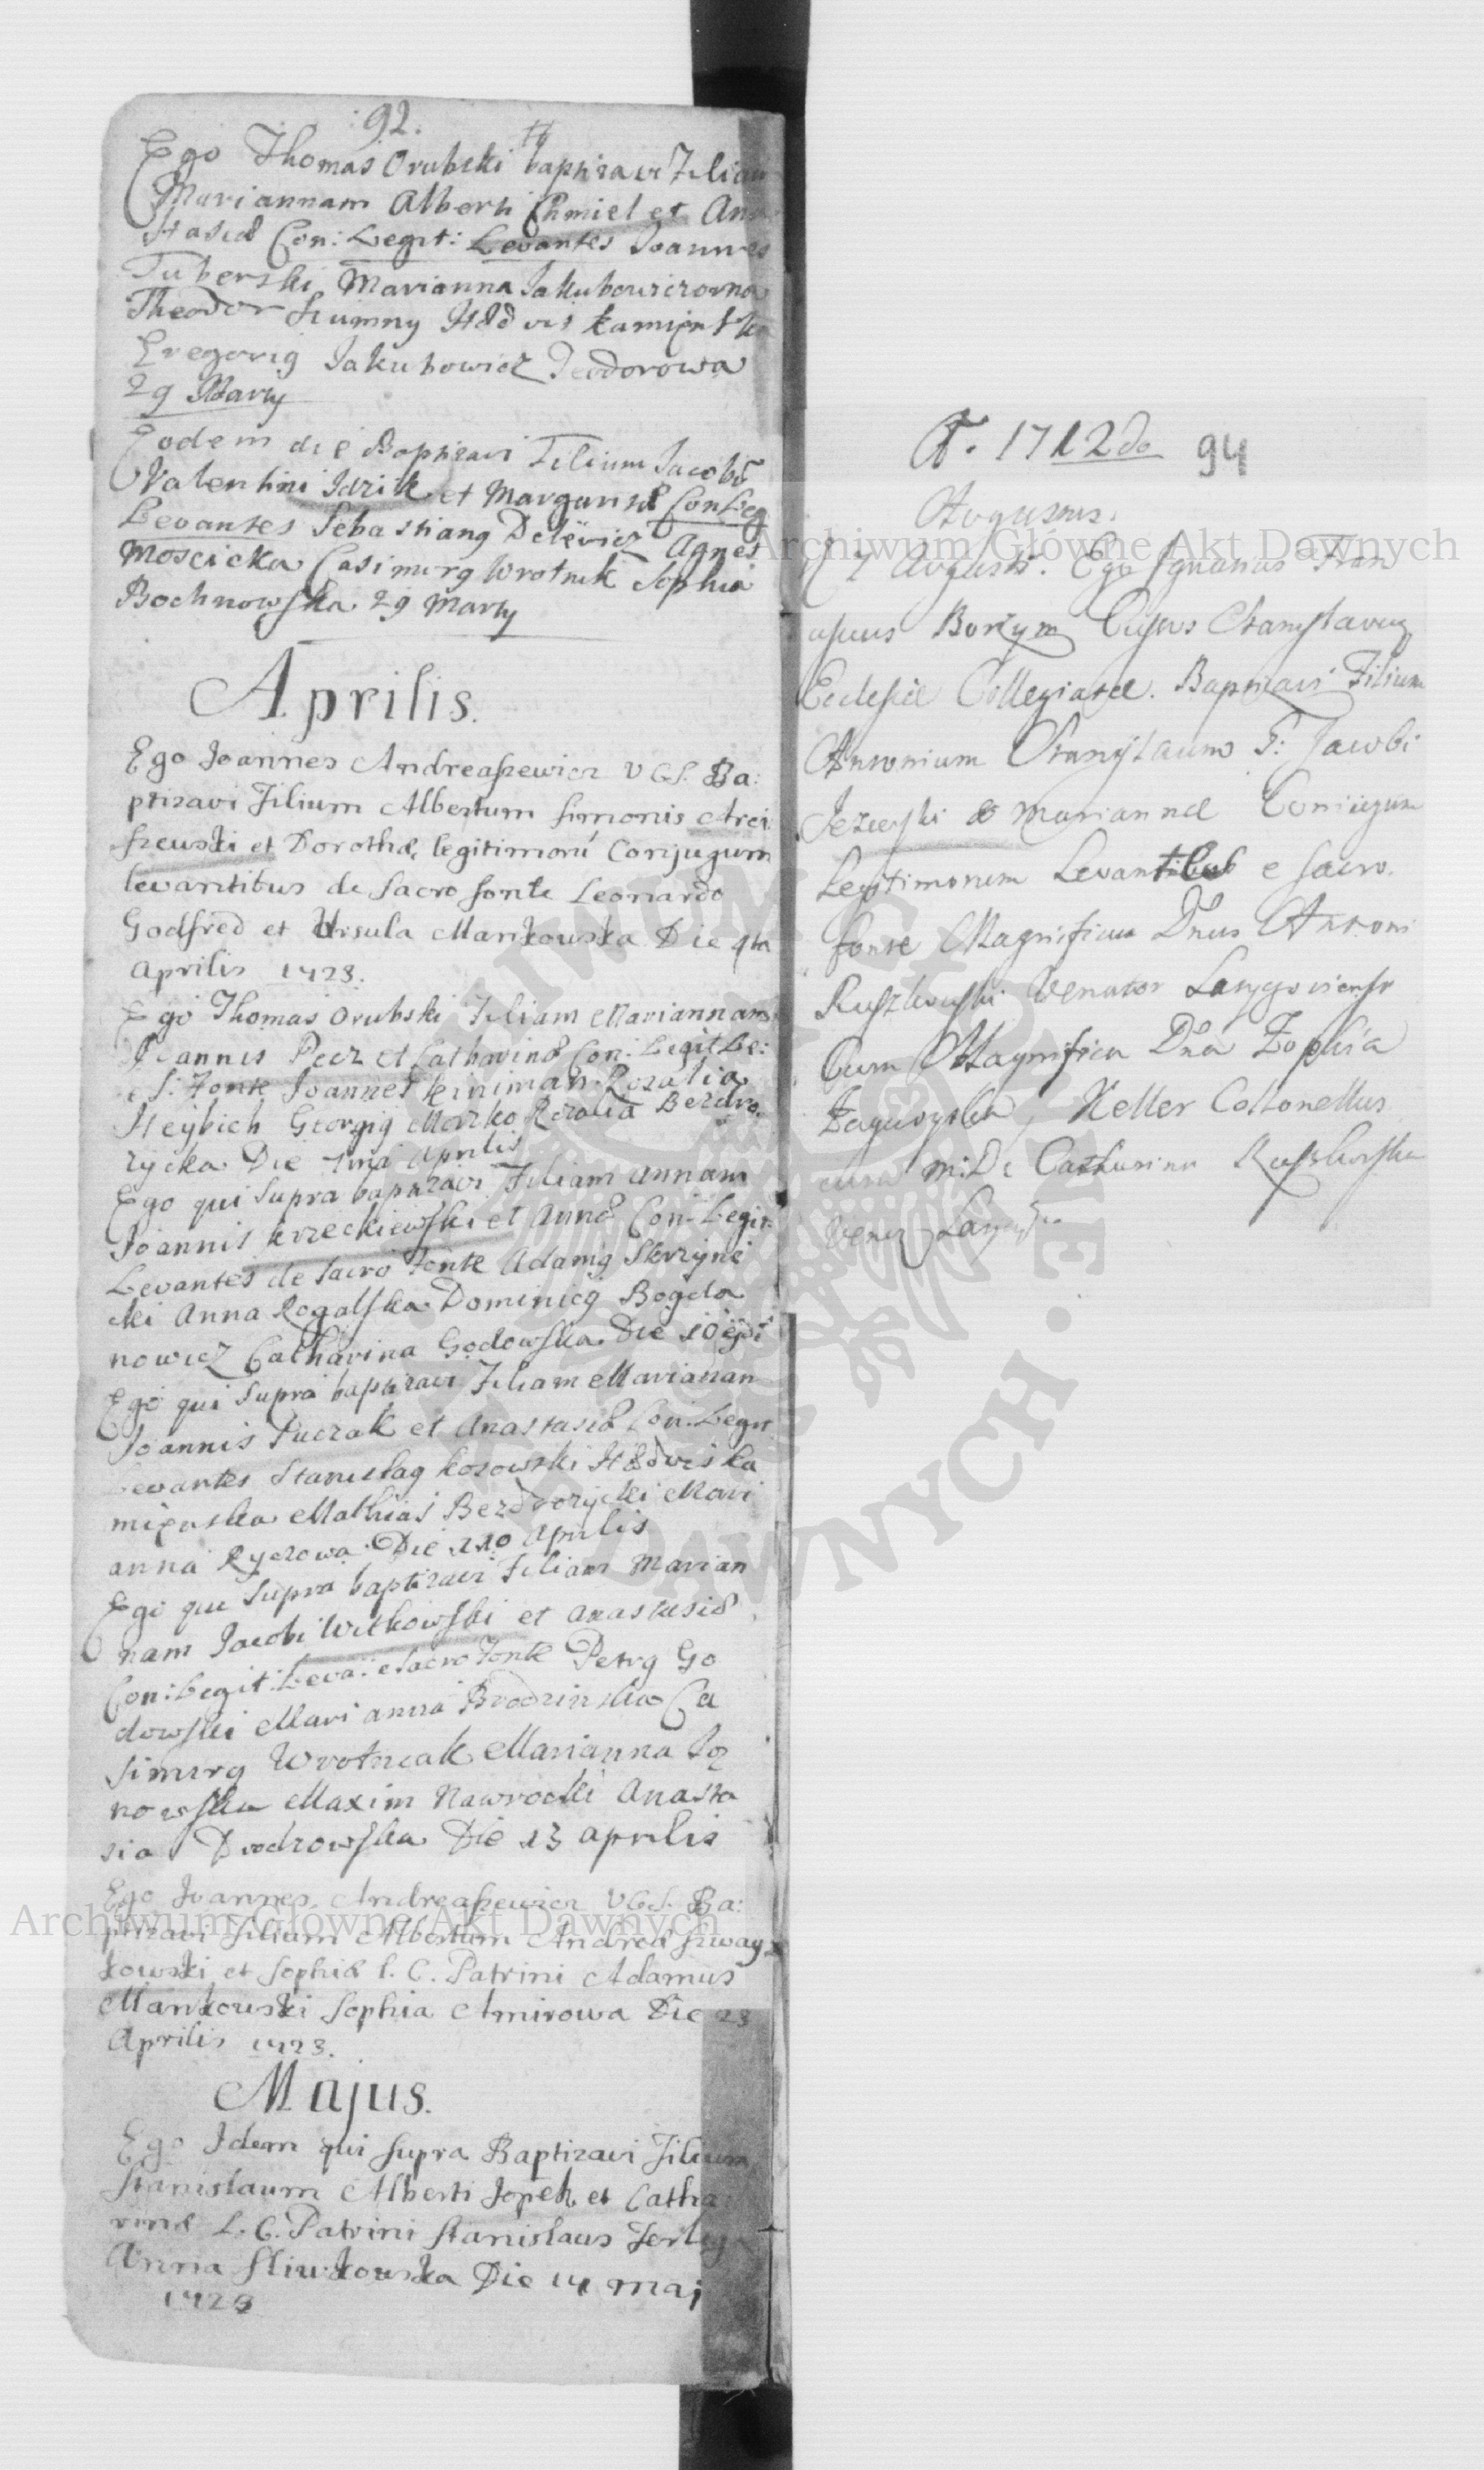 92.
Ego Thomas Orubski baptizavi Filiam
Mariannam Alberti Chmiel et Ana
stasiæ Con: Legit: Levantes Joannes
Tuberski Marianna Jakubowiczowna
Theodor Szumny Hedvis kamienska
Gregorig Jakubowicz Teodorowa
29 Marty
Eodem die Baptizavi Filium Jacobū
Valentini Jdzik et Margaritæ Con Leg
Levantes Sebastiang Agnes
Moscicka Casimirg Wrotnik Sophia
Bochnowska 29 Marty
Aprilis.
Ego Joannes Andreaszewicz VGS. Ba:
ptizavi Filium Albertum Simonis Arci
szewski et Dorothæ, legitimorū Conjugum
levantibus de Sacro fonte Leonardo
Godfred et Ursula Mankowska Die 4ta
Aprilis 1723.
Ego Thomas Orubski Filiam Mariannam
Joannis Pecz et Catharinæ Con: Legit Le:
e S: Fonte Joannes Keiniman Rozalia
Heybich Georgig Morzko Rozalia Bezdro
zycka Die 7ma Aprilis
Ego qui Supra baptizavi Filiam Annam
Joannis krzeckiewski et Annæ Con: Legit:
Levantes de Sacro Fonte Adamg Skrzyne
cki Anna Rogalska Dominicg Bogda
nowicz Catharina Godowska Die 10
Ego qui Supra baptizavi Filiam Mariannan
Joannis Puczak et Anastasiæ Con: Legit
Levantes Stanislag kosowski Hedvis ka
mięnska Mathias Bezdrozycki Mari
anna Ryczowa Die 110 Aprilis
Ego qui Supra baptizavi Filiam Marian
nam Jacobi Witkowski et Anastasiæ
Con: Legit: Leva: e Sacro Fonte Petrg Go
dowski Marianna Brodzinska Ca
simirg Wrotniak Marianna Jo
nowska Maxim Nawrocki Anasta
sia Die 13 Aprilis
Ego Joannes Andreaszewicz VGS. Ba:
ptizavi Filium Albertum Andreæ Szway
kowski et Sophiæ l. C. Patrini Adamus
Mankowski Sophia Amirowa Die 23
Aprilis 1723.
Majus.
Ego Idem qui supra Baptizavi Filium
Stanislaum Alberti Jopek et Catha
rinæ L. C. Patrini Stanislaus
Anna Sliwkowska Die 14 maj
1723
A. 1712do 94
Augustus.
Augusti. Ego Ignatius Fran
ciscus Borzym Custos Stanislavien
Ecclesiæ Collegiatæ. Baptizavi Filium
Antonium Stanislaum F: Jacobi
Jezierski & Mariannæ Coniugum
Legitimorum Levantibus e sacro
fonte Magnificus Dnus Antoni
Ruszkowski Venator
Cum Magnifica Dna Zophia
Keller Collonellus
cum M: D: Catharina Ruszkowska
Archiwum Główne Akt Dawnych
Archiwum Główne Akt Dawnych